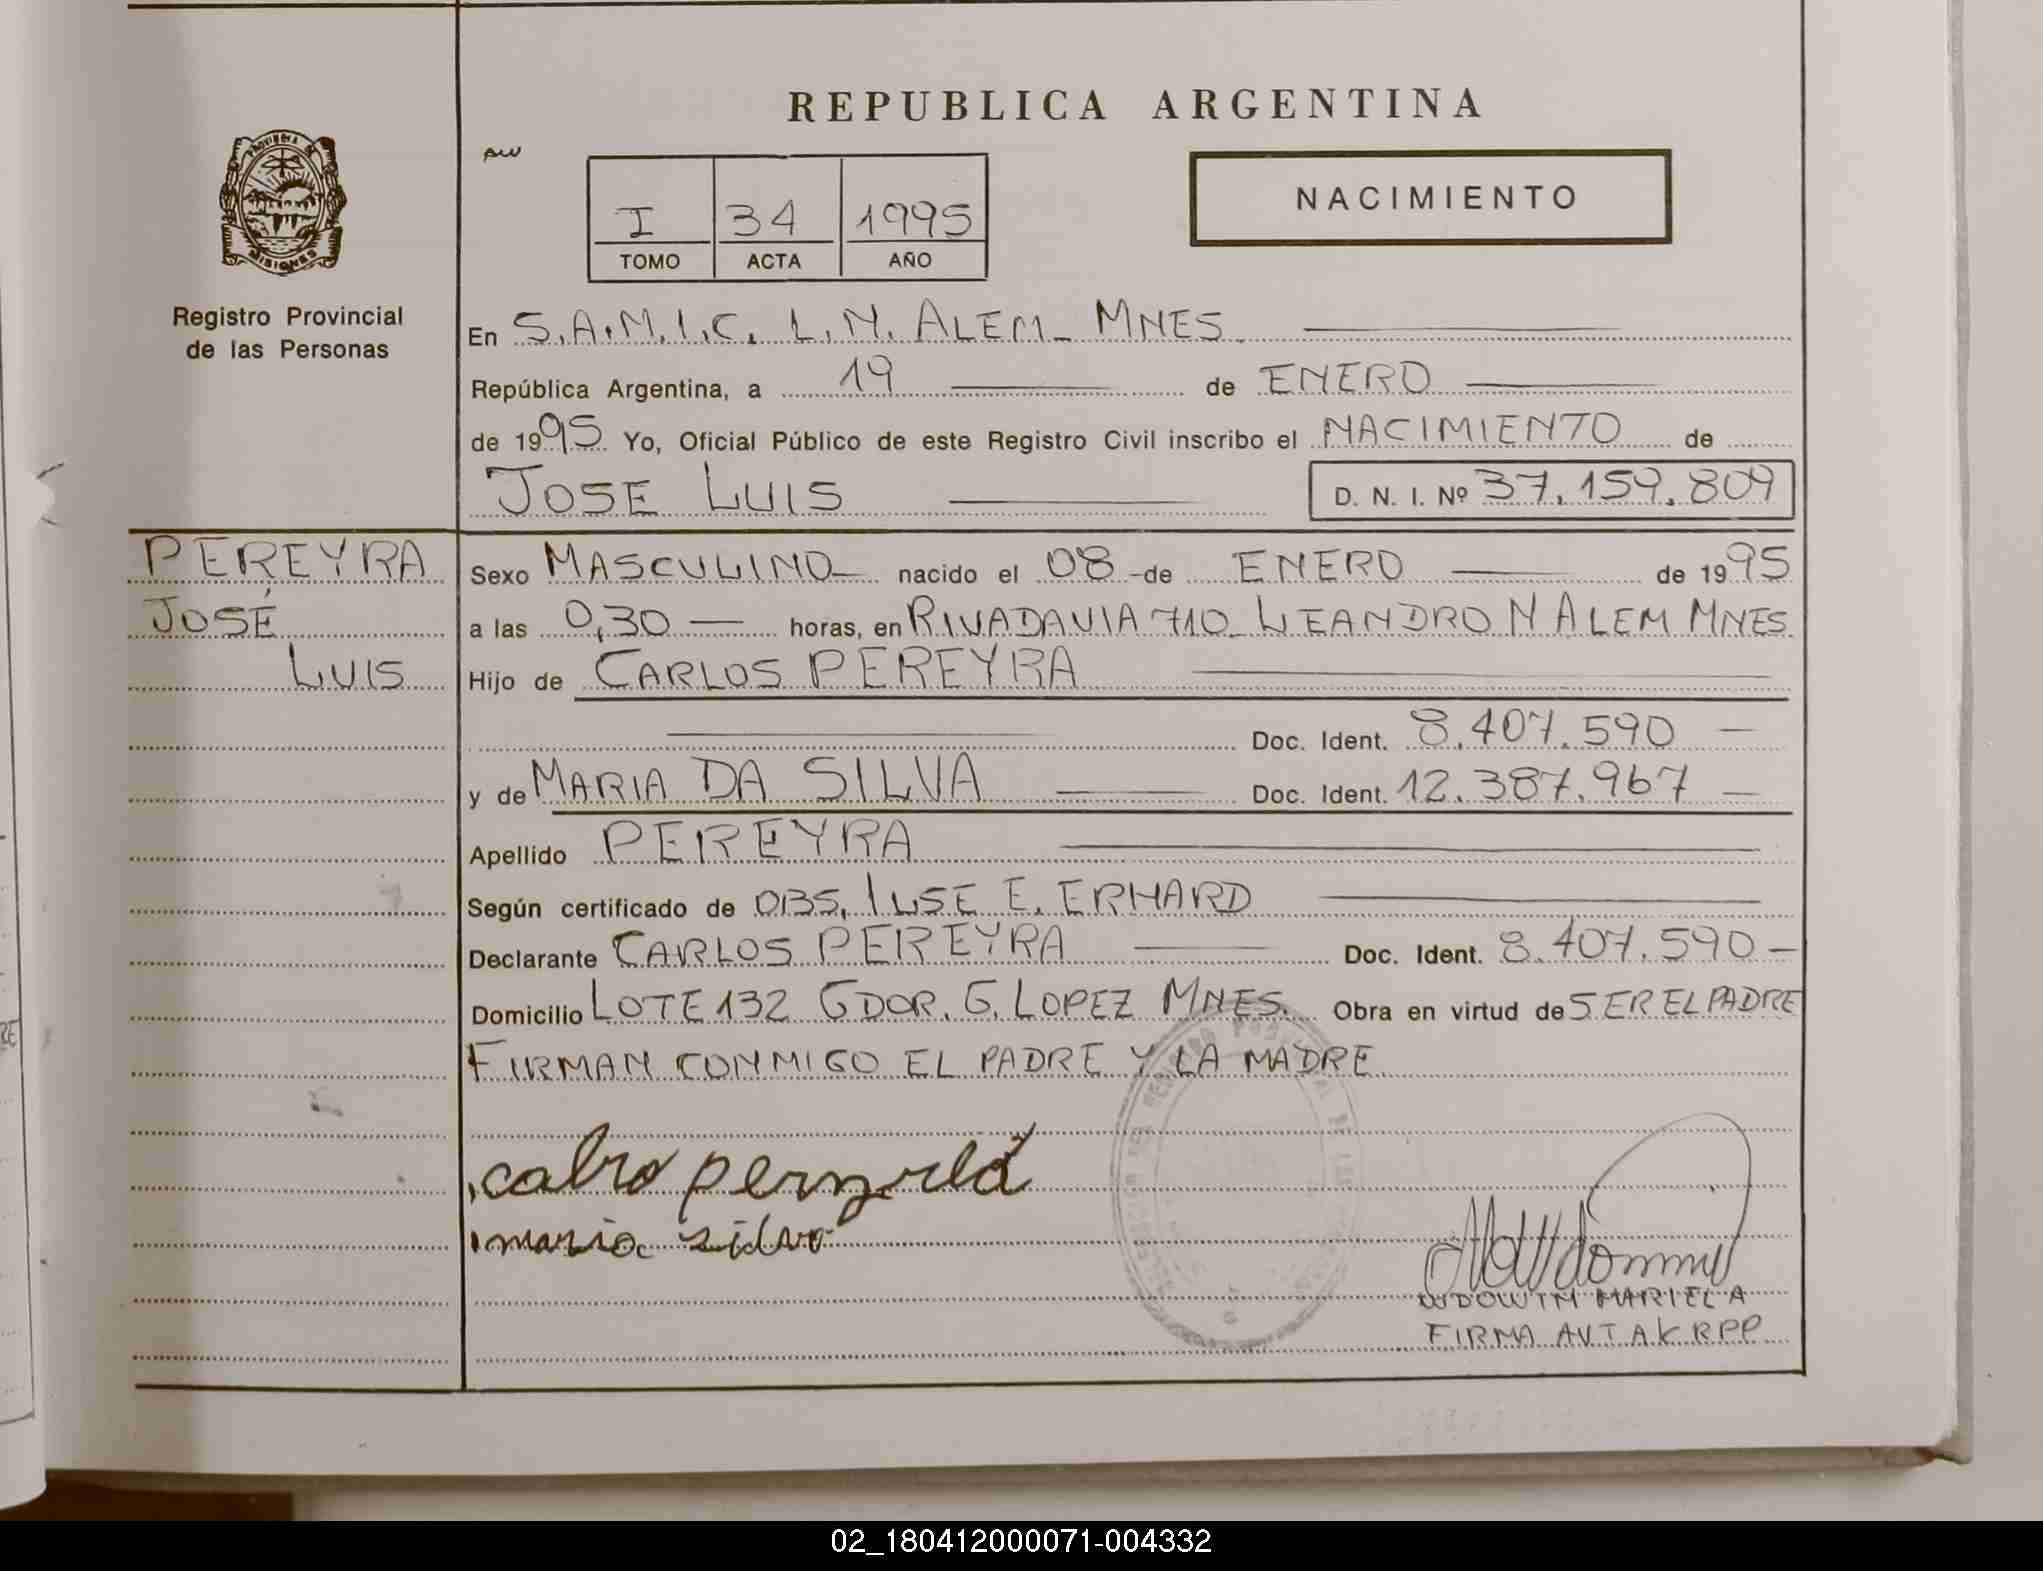 REPUBLICA ARGENTINA
PROVINCIA DE
MISIONES
Registro Provincial
de las Personas
I 34 1995
TOMO ACTA AÑO
NACIMIENTO
En S.A.M.I.C. L.N. ALEM - MNES.
República Argentina, a 19 de ENERO
de 1995. Yo, Oficial Público de este Registro Civil inscribo el NACIMIENTO de
JOSE LUIS D. N. I. Nº 37.159.809
PEREYRA
JOSÉ
LUIS
Sexo MASCULINO nacido el 08 de ENERO de 1995
a las 0,30 horas, en RIVADAVIA 710 - LEANDRO N ALEM MNES.
Hijo de CARLOS PEREYRA
Doc. Ident. 8.407.590
y de MARIA DA SILVA Doc. Ident. 12.387.967
Apellido PEREYRA
Según certificado de OBS. ILSE E. ERHARD
Declarante CARLOS PEREYRA Doc. Ident. 8.407.590
Domicilio LOTE 132 GDOR. G. LOPEZ MNES. Obra en virtud de SER EL PADRE
FIRMAN CONMIGO EL PADRE Y LA MADRE
maria silva
MARIEL A
FIRMA AUT A K RPP
02_180412000071-004332